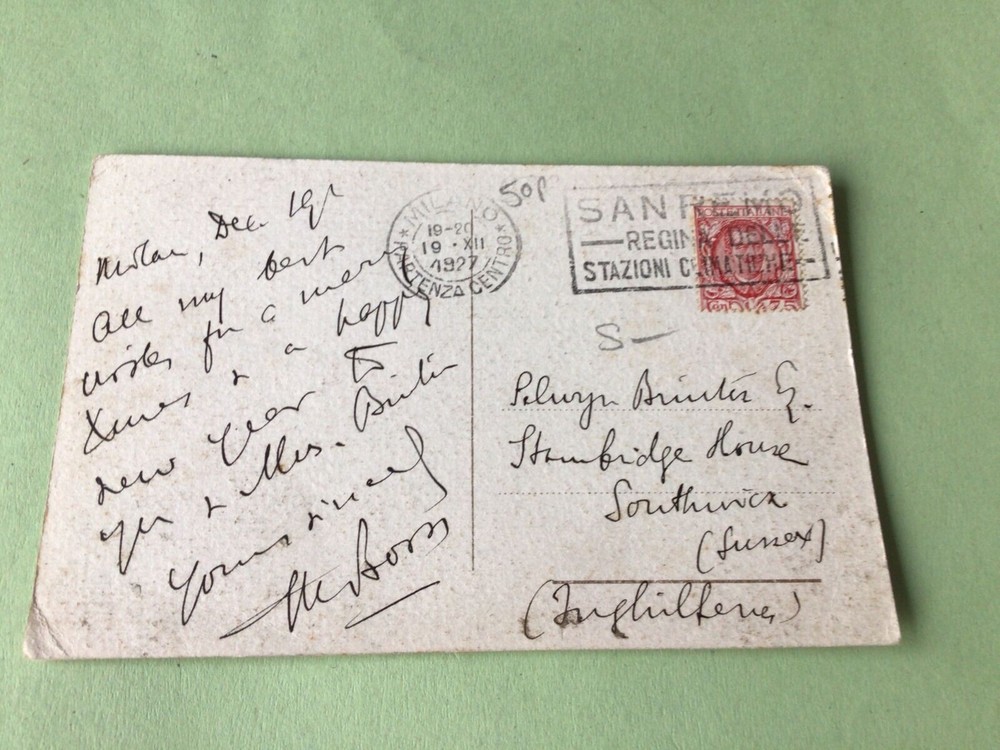 Milan, Dec. 19th
All my best
wishes for a merry
Xmas & a happy
new year to
you & Mrs. Brinton
Yours sincerely
MILANO
19-20
19 · XII
1927
PARTENZA CENTRO
50p
SAN REMO
REGINA DELLE
STAZIONI CLIMATICHE
POSTE ITALIANE
Cent. 75
S—
Selwyn Brinton Esq.
Stanbridge House
Southwick
(Sussex)
(Inghilterra)